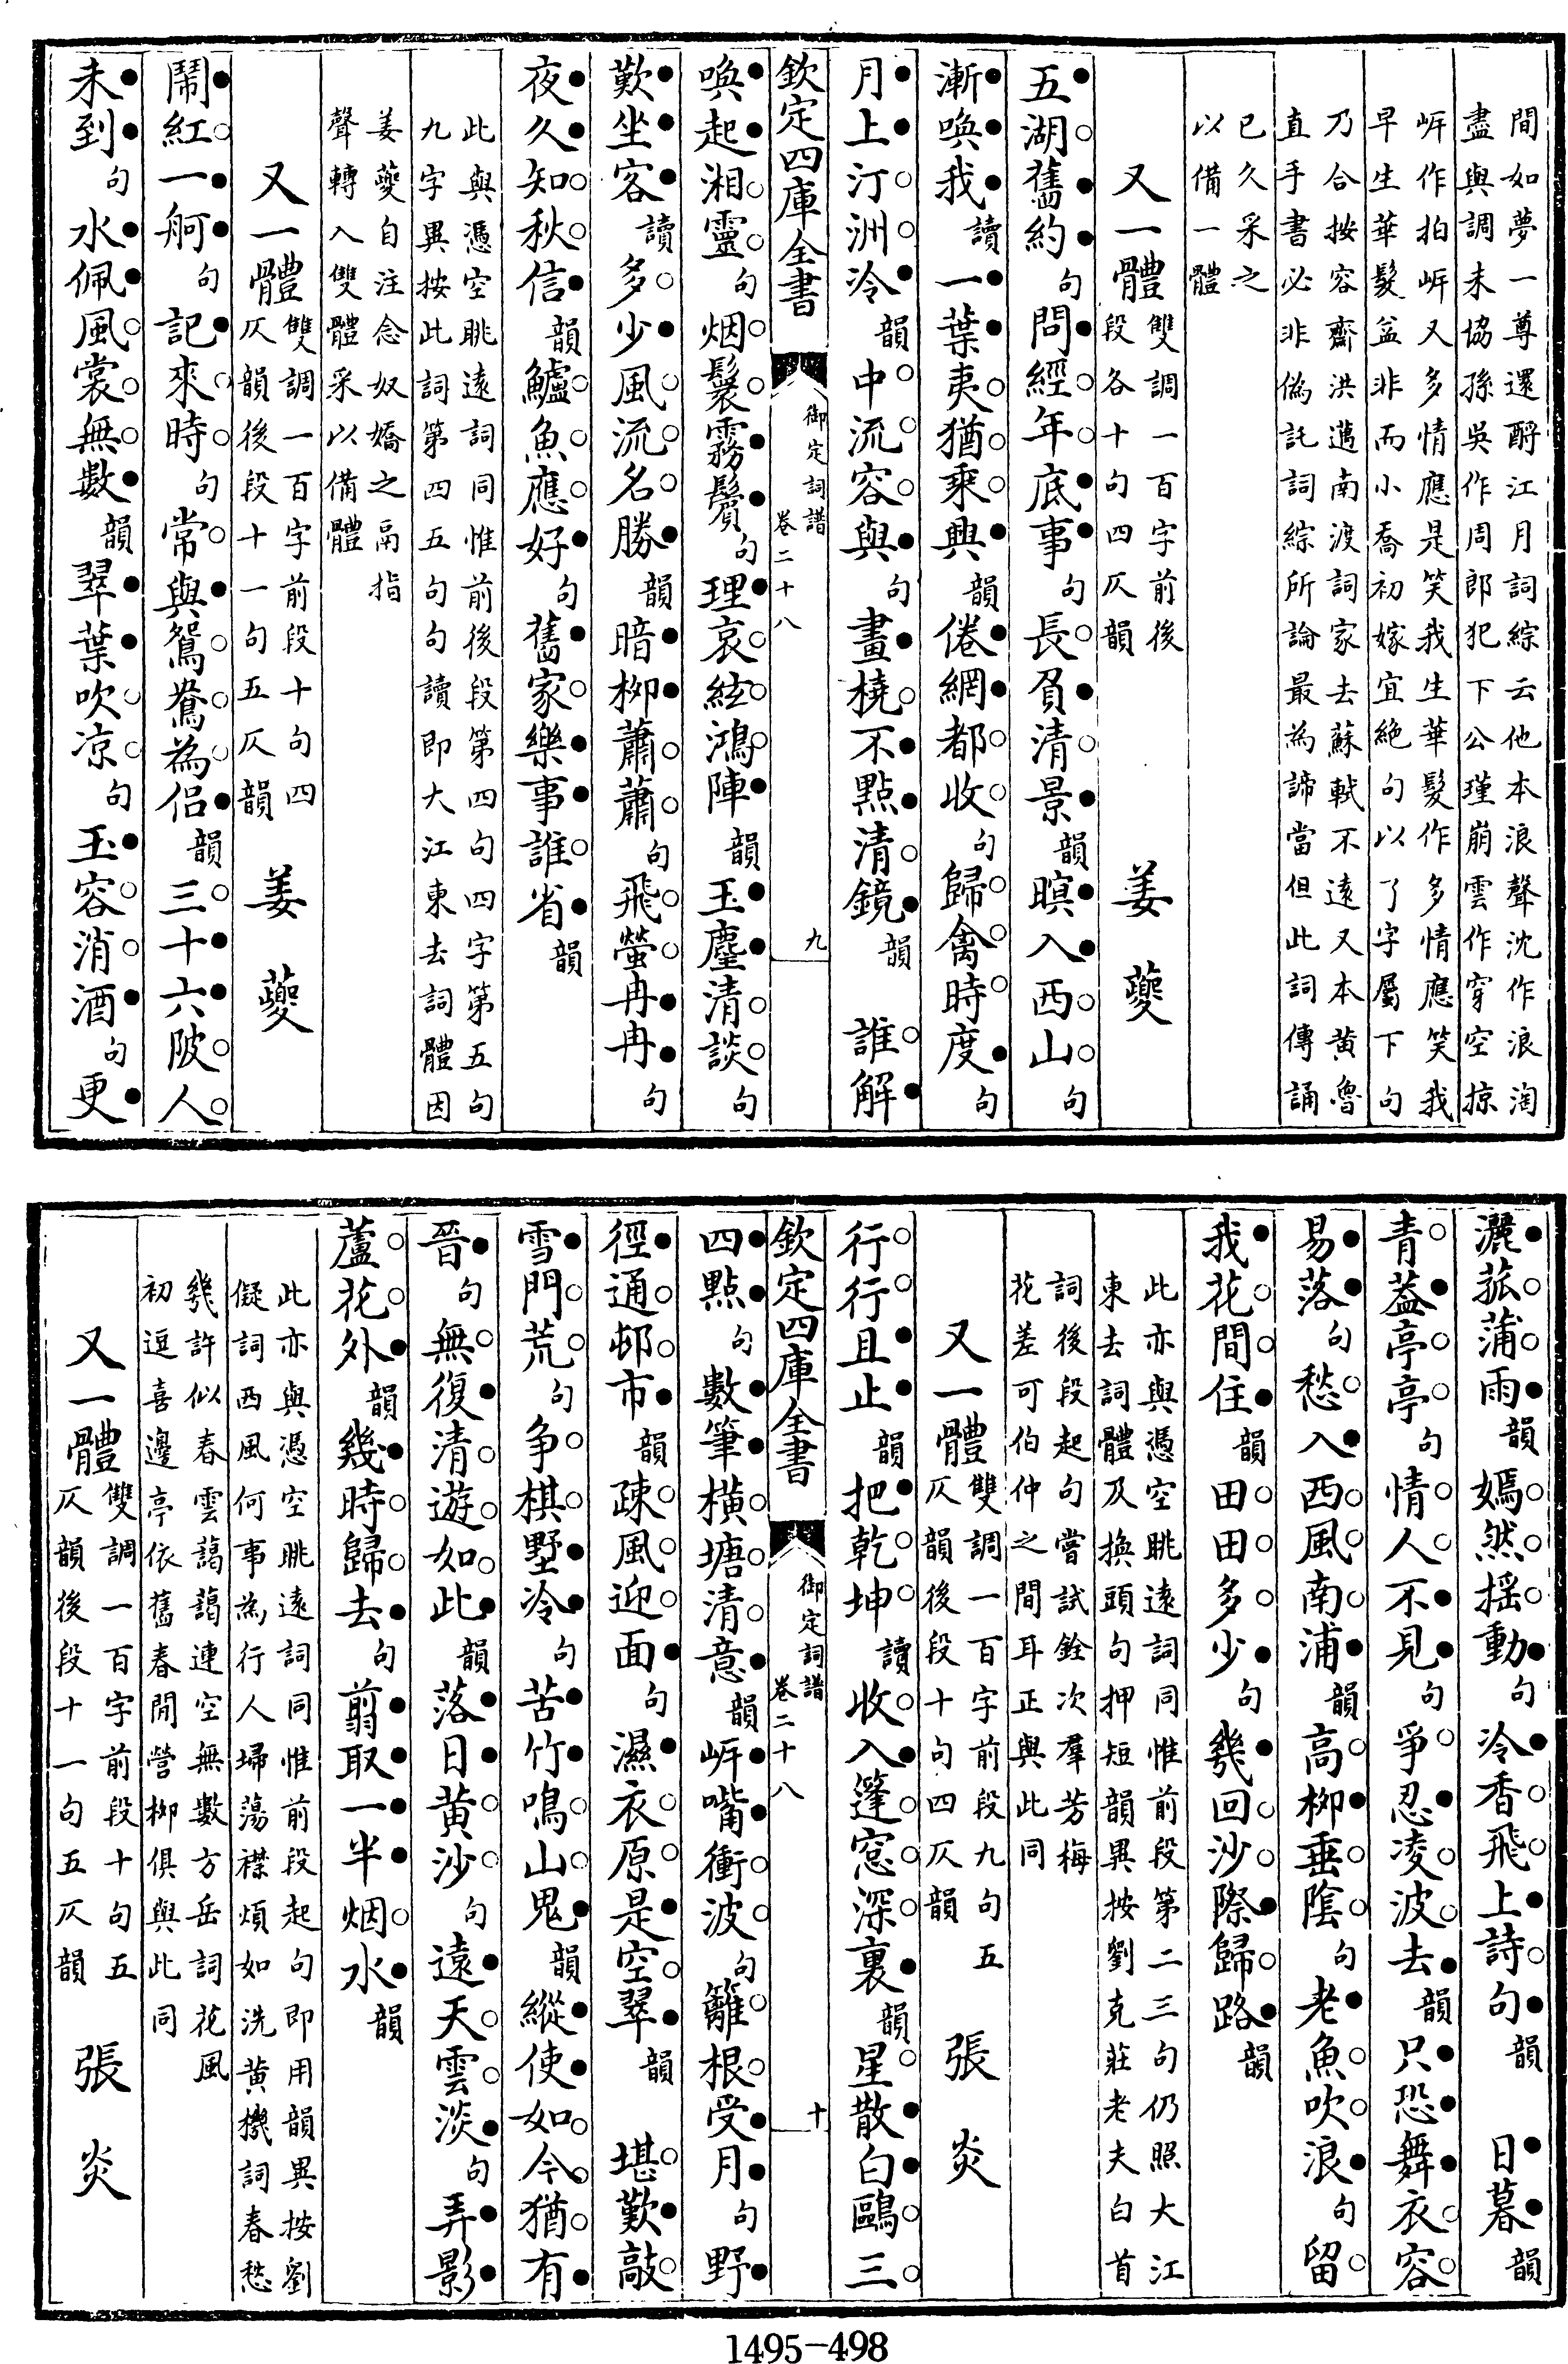 間如夢一尊還酹江月詞綜云他本浪聲沈作浪淘
盡與調未協孫吳作周郎犯下公瑾崩雲作穿空掠
岍作拍岍又多情應是笑我生華髮作多情應笑我
早生華髮益非而小喬初嫁宜絶句以了字屬下句
乃合按容齋洪邁南渡詞家去蘇軾不遠又本黄魯
直手書必非偽託詞綜所論最為諦當但此詞傳誦
已久采之
以備一體
又一體 雙調一百字前後段各十句四仄韻 姜夔
五湖舊約句問經年底事句長負清景韻暝入西山句
漸喚我讀一葉夷猶乘興韻倦網都收句歸禽時度句
月上汀洲冷韻中流容與句畫橈不點清鏡韻 誰解
欽定四庫全書 御定詞譜 卷二十八 九
喚起湘靈句烟鬟霧鬢句理哀絃鴻陣韻玉麈清談句
歎坐客讀多少風流名勝韻暗柳蕭蕭句飛螢冉冉句
夜久知秋信韻鱸魚應好句舊家樂事誰省韻
此與憑空眺遠詞同惟前後段第四句四字第五句
九字異按此詞第四五句句讀即大江東去詞體因
姜夔自注念奴嬌之鬲指
聲轉入雙體采以備體
又一體 雙調一百字前段十句四仄韻後段十一句五仄韻 姜夔
鬧紅一舸句記來時句常與鴛鴦為侣韻三十六陂人
未到句水佩風裳無數韻翠葉吹凉句玉容消酒句更
灑菰蒲雨韻嫣然摇動句冷香飛上詩句韻 日暮韻
青葢亭亭句情人不見句爭忍凌波去韻只恐舞衣容
易落句愁入西風南浦韻高柳垂陰句老魚吹浪句留
我花間住韻田田多少句幾回沙際歸路韻
此亦與憑空眺遠詞同惟前段第二三句仍照大江
東去詞體及換頭句押短韻異按劉克莊老夫白首
詞後段起句嘗試銓次羣芳梅
花差可伯仲之間耳正與此同
又一體 雙調一百字前段九句五仄韻後段十句四仄韻 張炎
行行且止韻把乾坤讀收入篷窓深裏韻星散白鷗三
欽定四庫全書 御定詞譜 卷二十八 十
四點句數筆横塘清意韻岍嘴衝波句籬根受月句野
徑通邨市韻疎風迎面句濕衣原是空翠韻 堪歎敲
雪門荒句争棋墅冷句苦竹鳴山鬼韻縱使如今猶有
晉句無復清遊如此韻落日黄沙句遠天雲淡句弄影
蘆花外韻幾時歸去句翦取一半烟水韻
此亦與憑空眺遠詞同惟前段起句即用韻異按劉
儗詞西風何事為行人埽蕩襟煩如洗黄機詞春愁
幾許似春雲藹藹連空無數方岳詞花風
初逗喜邊亭依舊春閒營柳俱與此同
又一體 雙調一百字前段十句五仄韻後段十一句五仄韻 張炎
1495-498